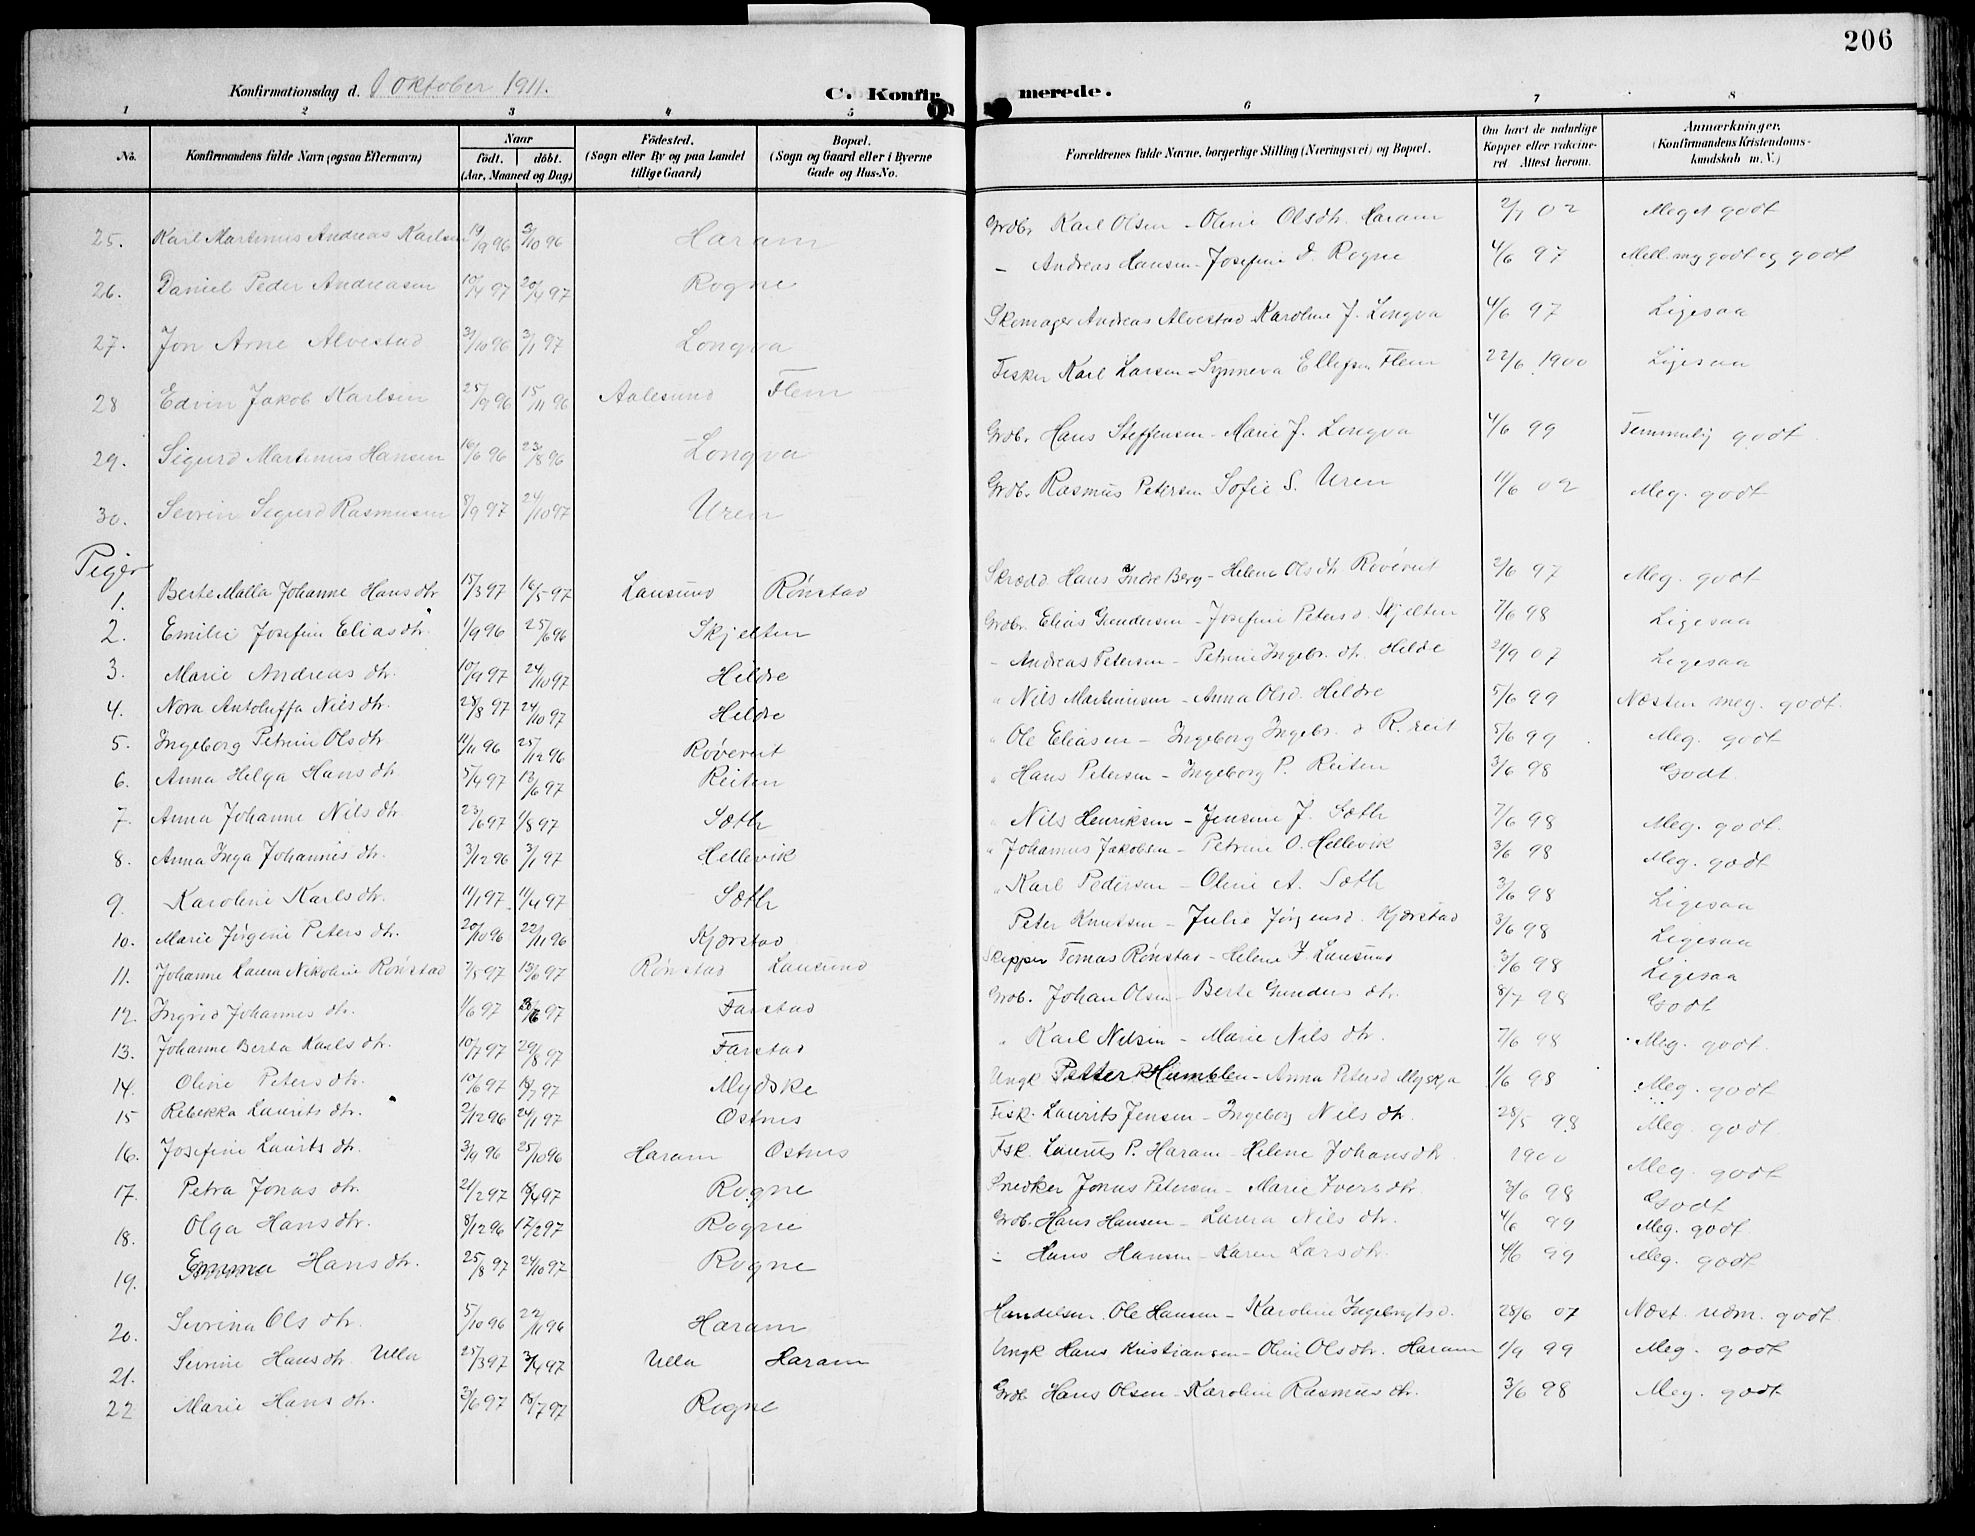 206
Konfirmationsdag d. 1 Oktober 1911. C. Konfirmerede.
1 2 3 4 5 6 7 8
No. Konfirmandens fulde Navn (ogsaa Efternavn) Naar født. døbt. (Aar, Maaned og Dag) Fødested. (Sogn eller By og paa Landet tillige Gaard) Bopæl. (Sogn og Gaard eller i Byerne Gade og Hus-No. Forældrenes fulde Navne, borgerlige Stilling (Næringsvei) og Bopæl. Om havt de naturlige Kopper eller vakcineret. Attest herom. Anmærkninger. (Konfirmandens Kristendomskundskab m. V.)
25. Karl Martinus Andreas Karlsen 19/9 96 3/10 96 Haram Grdbr. Karl Olsen - Oline Olsdtr. Haram 2/7 02 Meget godt
26. Daniel Peder Andreasen 10/4 97 20/4 97 Rogne - Andreas Hansen - Josefine D. Rogne 4/6 97 Mell. mg godt og godt
27. Jon Arne Alvestad 31/10 96 3/1 97 Longva Skomager Andreas Alvestad Karoline J. Longva 4/6 97 Ligesaa
28 Edvin Jakob Karlsen 25/9 96 15/11 96 Aalesund Flem Fisker Karl Larsen - Synneva Ellefsen Flem 22/6 1900 Ligesaa
29. Sigurd Martinus Hansen 16/6 96 23/8 96 Longva Grdbr. Hans Steffensen - Marie J. Longva 4/6 99 Temmelig godt
30. Sevrin Sigurd Rasmusen 8/9 97 24/10 97 Uren Grdbr. Rasmus Petersen Sofie S. Uren 11/6 02 Meg. godt
Piger
1. Berte Malla Johanne Hansdtr 15/3 97 16/5 97 Lausund Rønstad Skrædd. Hans Indre Berg - Helene Olsdtr Røvereit 2/6 97 Meg. godt
2. Emilie Josefine Eliasdtr. 1/9 96 25/6 96 Skjelten Grdbr. Elias Gundersen - Josefine Petersd. Skjelten 7/6 98 Ligesaa
3. Marie Andreasdtr. 10/9 97 24/10 97 Hildre - Andreas Petersen - Petrine Ingebr.dtr. Hildre 21/9 07 Ligesaa
4. Nora Antoluffa Nilsdtr. 28/8 97 24/10 97 Hildre " Nils Martinusen - Anna Olsd. Hildre 5/6 99 Næsten meg. godt.
5. Ingeborg Petrine Olsdtr 11/11 96 25/12 96 Røvereit " Ole Eliasen - Ingeborg Ingebr.d R.reit 5/6 99 Meg. godt
6. Anna Helga Hansdtr 5/4 97 13/6 97 Reiten " Hans Petersen - Ingeborg P. Reiten 3/6 98 Godt.
7. Anna Johanne Nilsdtr 23/6 97 1/8 97 Sæth " Nils Henriksen - Jensine J. Sæth 7/6 98 Meg. godt.
8. Anna Inga Johannesdtr. 3/12 96 3/1 97 Hellevik " Johannes Jakobsen - Petrine O. Hellevik 3/6 98 Meg. godt
9. Karoline Karlsdtr. 11/1 97 11/4 97 Sæth " Karl Pedersen - Oline A. Sæth 3/6 98 Ligesaa
10. Marie Jørgine Petersdtr. 20/10 96 22/11 96 Kjærstad Peter Knutsen - Julie Jørgensd. Kjærstad 3/6 98 Ligesaa
11. Johanne Laura Nikoline Rønstad 7/5 97 13/6 97 Rønstad Lausund Skipper Tomas Rønstad - Helene F. Lausund 3/6 98 Ligesaa
12. Ingrid Johannesdtr. 1/6 97 20/6 97 Farstad Grdb. Johan Olsen - Berte Gundersdtr. 8/7 98 Godt
13. Johanne Berta Karlsdtr. 10/7 97 29/8 97 Farstad " Karl Nilsen - Marie Nilsdtr. 7/6 98 Meg. godt
14. Oline Petersdtr. 10/6 97 18/7 97 Mydske Ungk Petter Humblen - Anna Petersd Myskja 1/6 98 Meg. godt
15 Rebekka Lauritsdtr. 2/12 96 24/1 97 Østnes Fisk. Laurits Jensen - Ingeborg Nilsdtr. 28/5 98 Meg. godt
16. Josefine Lauritsdtr. 3/9 96 25/10 96 Haram Østnes Fsk. Laurits P. Haram - Helene Johansdtr. 1900 Meg. godt
17. Petra Jonasdtr. 21/2 97 18/4 97 Rogne Snedker Jonas Petersen - Marie Iversdtr. 3/6 98 Godt
18. Olga Hansdtr. 8/12 96 17/2 97 Rogne Grdb. Hans Hansen - Laura Nilsdtr. 4/6 99 Meg. godt
19. Emma Hansdtr. 25/8 97 24/10 97 Rogne - Hans Hansen - Karen Larsdtr. 4/6 99 Meg. godt
20. Sevrina Olsdtr. 5/10 96 22/11 96 Haram Handelsm. Ole Hansen - Karoline Ingebrigtsd. 28/6 07 Næst. udm. godt.
21. Sevrine Hansdtr. Ulla 25/3 97 3/4 97 Ulla Haram Ungk Hans Kristiansen - Oline Olsdtr. Haram 1/9 99 Meg. godt
22 Marie Hansdtr. 3/6 97 18/7 97 Rogne Grdb Hans Olsen - Karoline Rasmusdtr. 3/6 98 Meg. godt